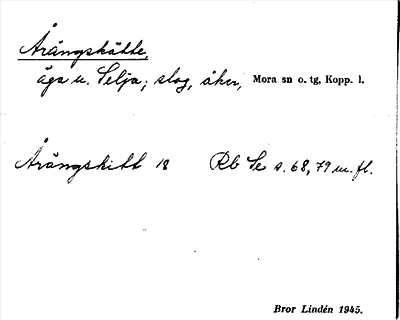 Årängskätte,
äga u. Selja; slog, åker, Mora sn o. tg, Kopp. l.
Årängskitt 18 Rb Se s. 68, 79 m. fl.
Bror Lindén 1945.